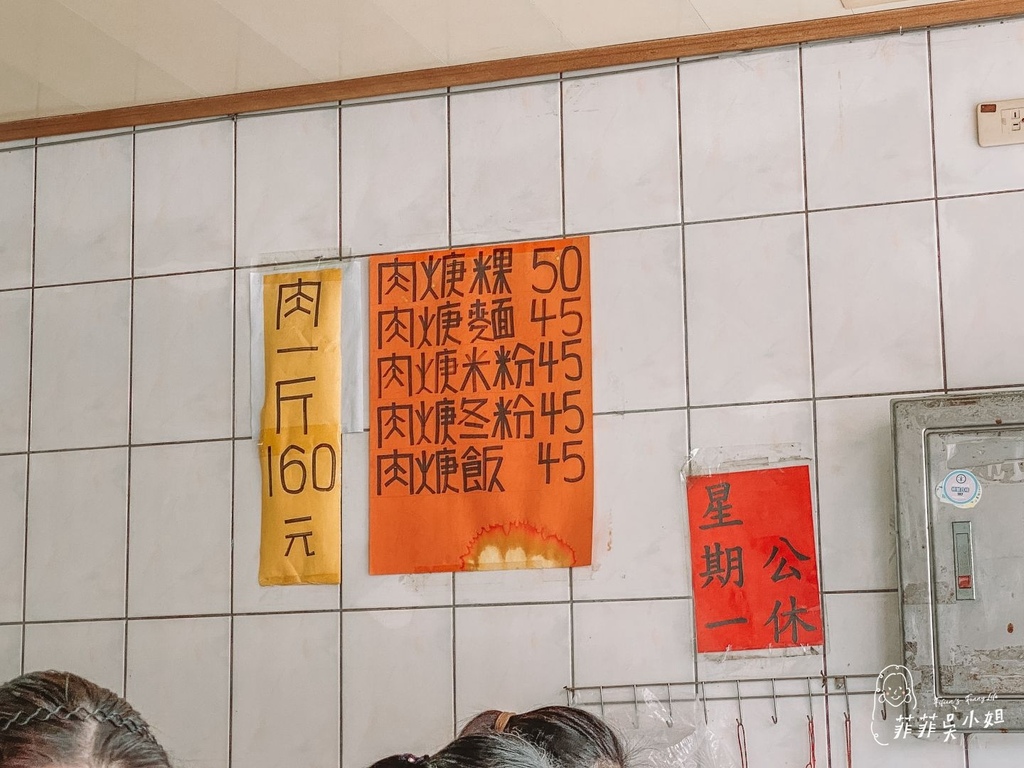 肉一斤160元
肉焿粿 50
肉焿麵 45
肉焿米粉 45
肉焿冬粉 45
肉焿飯 45
星期一
公休
菲菲吳小姐